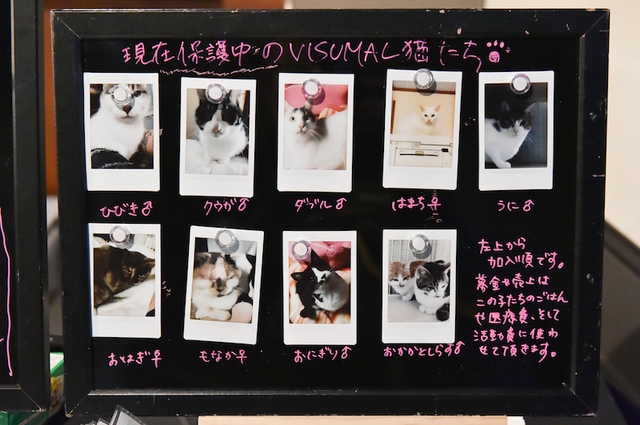 現在保護中のVISUMAL猫たち
ひびき♂
クウガ♂
ダヅル♂
はまち♀
うに♂
おはぎ♀
もなか♀
おにぎり♂
おかかとしらす♂
左上から
加入順です。
募金や売上は
この子たちのごはん
や医療費、そして
活動費に使わ
せて頂きます。